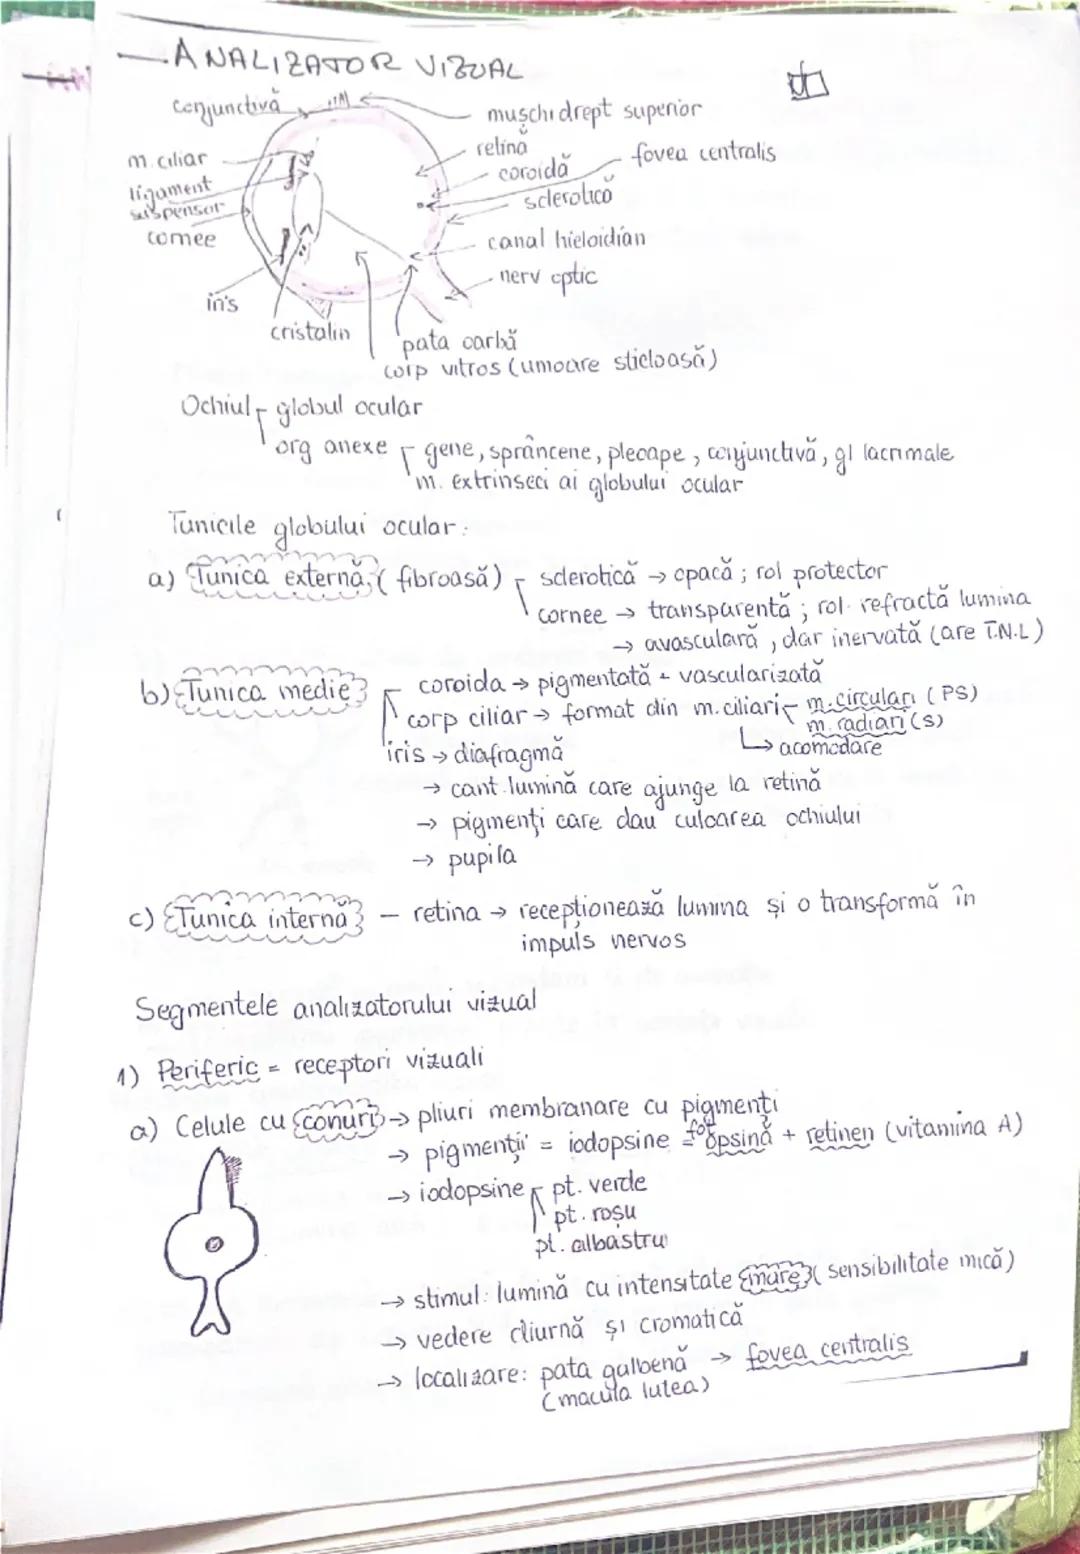 ANALIZATOR VIZUAL
conjunctivă
mușchi drept superior
retină
fovea centralis
m. ciliar
coroidă
ligament
suspensor
sclerotică
cornee
canal hieloidian
nerv optic
iris
cristalin
pata oarbă
corp vitros (umoare sticloasă)
Ochiul globul ocular
org anexe gene, sprâncene, pleoape, conjunctivă, gl lacrimale
m. extrinseci ai globului ocular
Tunicile globului ocular:
a) Tunica externă (fibroasă) sclerotică → opacă; rol protector
cornee → transparentă; rol refractă lumina
→ avasculară, dar inervată (are T.N.L)
b) Tunica medie coroida → pigmentată + vascularizată
corp ciliar → format din m. ciliari m. circulari (PS)
m. radiari (s)
iris → diafragmă ↳ acomodare
→ cant. lumină care ajunge la retină
→ pigmenți care dau culoarea ochiului
→ pupila
c) Tunica internă – retina → recepționează lumina și o transformă în
impuls nervos
Segmentele analizatorului vizual
1) Periferic = receptori vizuali
a) Celule cu conuri → pliuri membranare cu pigmenți
→ pigmenții = iodopsine = fotopsină + retinen (vitamina A)
→ iodopsine pt. verde
pt. roșu
pt. albastru
→ stimul: lumină cu intensitate mare (sensibilitate mică)
→ vedere diurnă și cromatică
→ localizare: pata galbenă → fovea centralis
(macula lutea)